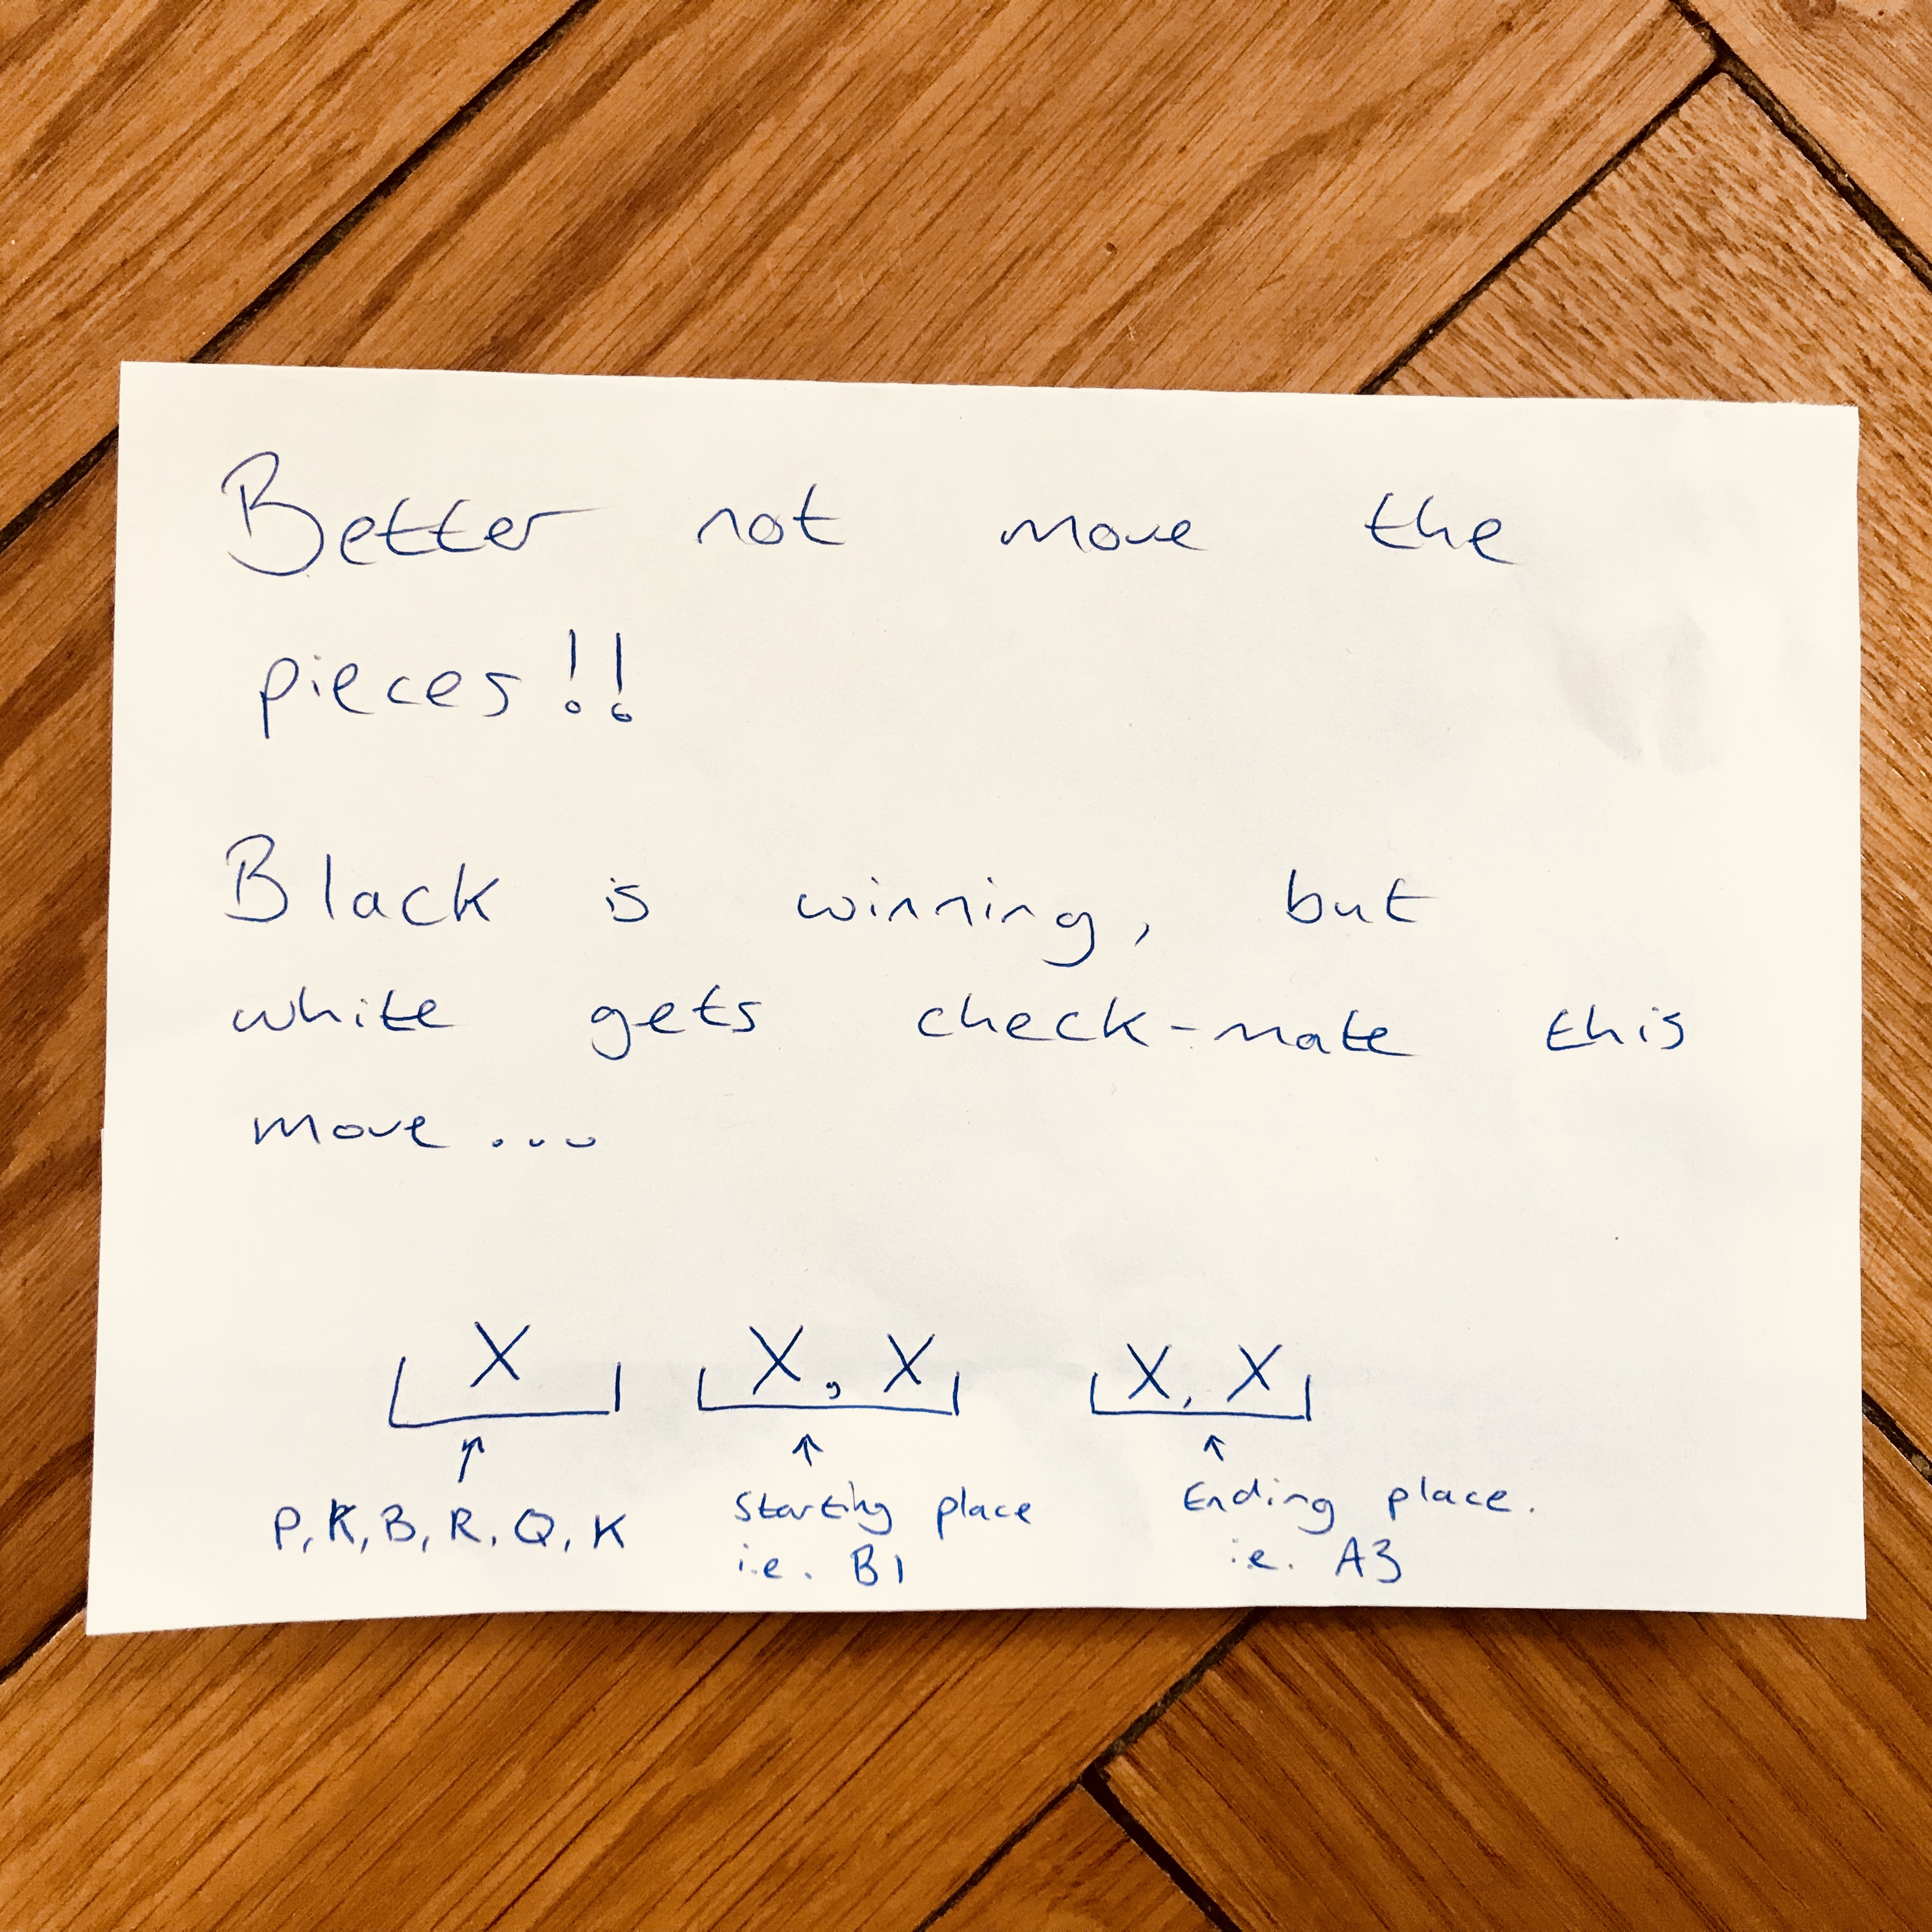 Better not move the
pieces!!
Black is winning, but
white gets check-mate this
move...
X X, X X, X
P, K, B, R, Q, K Starting place Ending place.
i.e. B1 i.e. A3